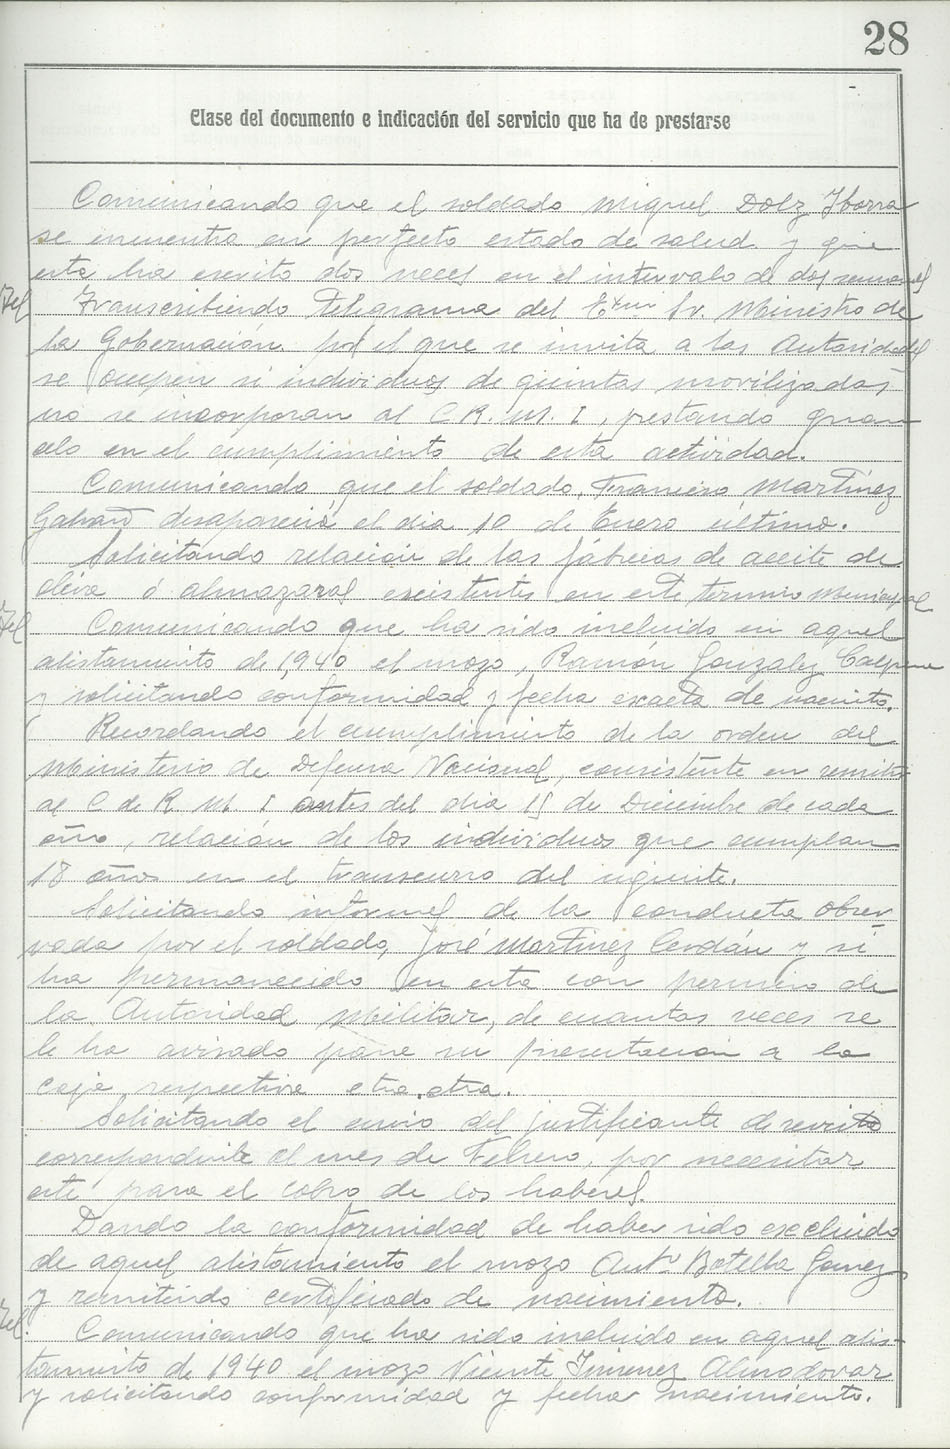 28
Clase del documento e indicación del servicio que ha de prestarse
Comunicando que el soldado Miguel Dolz Iborra
se encuentra en perfecto estado de salud y que
este ha escrito dos veces en el intervalo de dos semanas
Transcribiendo Telegrama del Exmo Sr. Ministro de
la Gobernación por el que se invita a las Autoridades
se ocupen si individuos de quintas movilizadas
no se incorporan al C.R.M.I, prestando gran
celo en el cumplimiento de esta actividad.
Comunicando que el soldado, Francisco Martinez
desapareció el dia 10 de Enero último.
Solicitando relación de las fábricas de aceite de
oliva ó almazaras existentes en este termino Municipal
Comunicando que ha sido incluido en aquel
alistamiento de 1,940 el mozo, Ramón Gonzalez
y solicitando conformidad y fecha exacta de nacmto.
Recordando el cumplimiento de la orden del
Ministerio de Defensa Nacional, consistente en remitir
al C de R M I antes del dia 15 de Diciembre de cada
año, relación de los individuos que cumplan
18 años en el transcurso del siguiente.
Solicitando informes de la conducta obser
vada por el soldado, José Martinez Cerdán y si
ha permanecido en esta con permiso de
la Autoridad Militar, de cuantas veces se
le ha avisado para su presentacion a la
caja respectiva etra. etra.
Solicitando el envio del justificante de revista
correspondiente al mes de Febrero, por necesitar
este para el cobro de los haberes.
Dando la conformidad de haber sido excluido
de aquel alistamiento el mozo Antº Botella Gomez
y remitiendo certificado de nacimiento.
Comunicando que ha sido incluido en aquel alis-
tamiento de 1940 el mozo Vicente Jimenez Almodovar
y solicitando conformidad y fecha nacimiento.